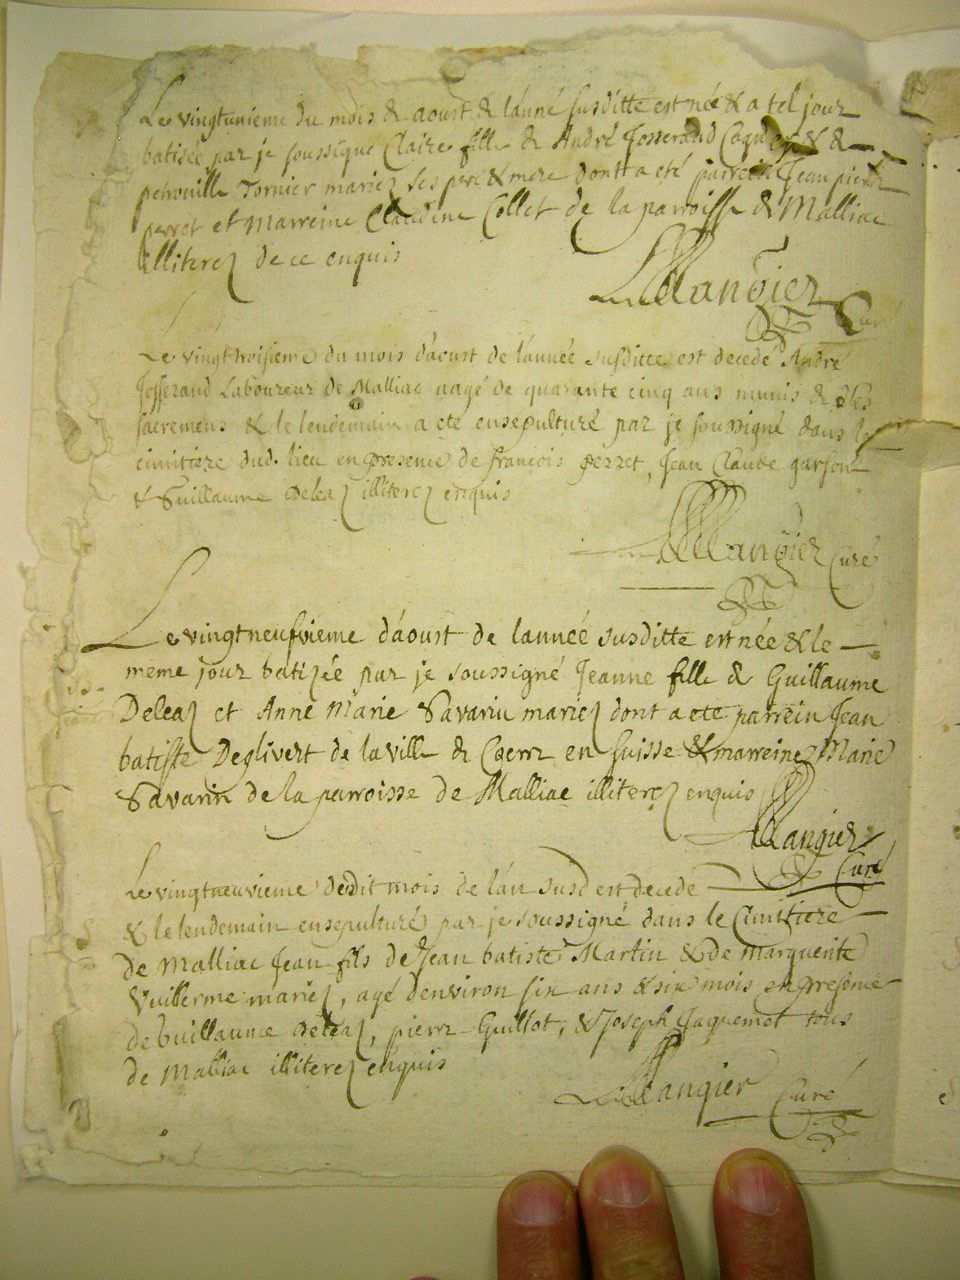 Le vingtunieme du mois & aoust & lánné susditte est née & a tel jour
batisée par je soussigné Claire fille & André Josserand &
petrouille Tornier mariez ses pere & mere dont a eté parrein Jean pierre
perret et Marreine Claudine Collet de la parroisse & Malliac
illiterez de ce enquis
Mangier Curé
Le vingttroisieme du mois dáoust de lánnée susditte est decedé André
Josserand Laboureur de Malliac aagé de quarante cinq ans munis & des
sacremens & le lendemain a eté ensepulturé par je soussigné dans le
cimitiere dud. lieu en presence de francois perret, Jean Claude garson
& Guillaume Deleaz illiterez enquis
Mangier Curé
Le vingtneufvieme dáoust de lannéé susditte est née & le
meme jour batizée par je soussigné Jeanne fille & Guillaume
Deleaz et Anne Marie Savarin mariez dont a eté parrein Jean
batiste Deglivert de la ville & en suisse & marreine Marie
Savarin de la parroisse de Malliac illiterez enquis
Mangier
Curé
Le vingtneuvieme dudit mois de lán susd est decede
& le lendemain ensepulturé par je soussigné dans le Cimitiere
de Malliac Jean fils de Jean batiste Martin & de Marguerite
Vuillerme mariez, agé denviron six ans & six mois en presence
de Guillaume Deleaz, pierre Guillot, & Joseph Jaquemet tous
de Malliac illiterez enquis
Mangier Curé